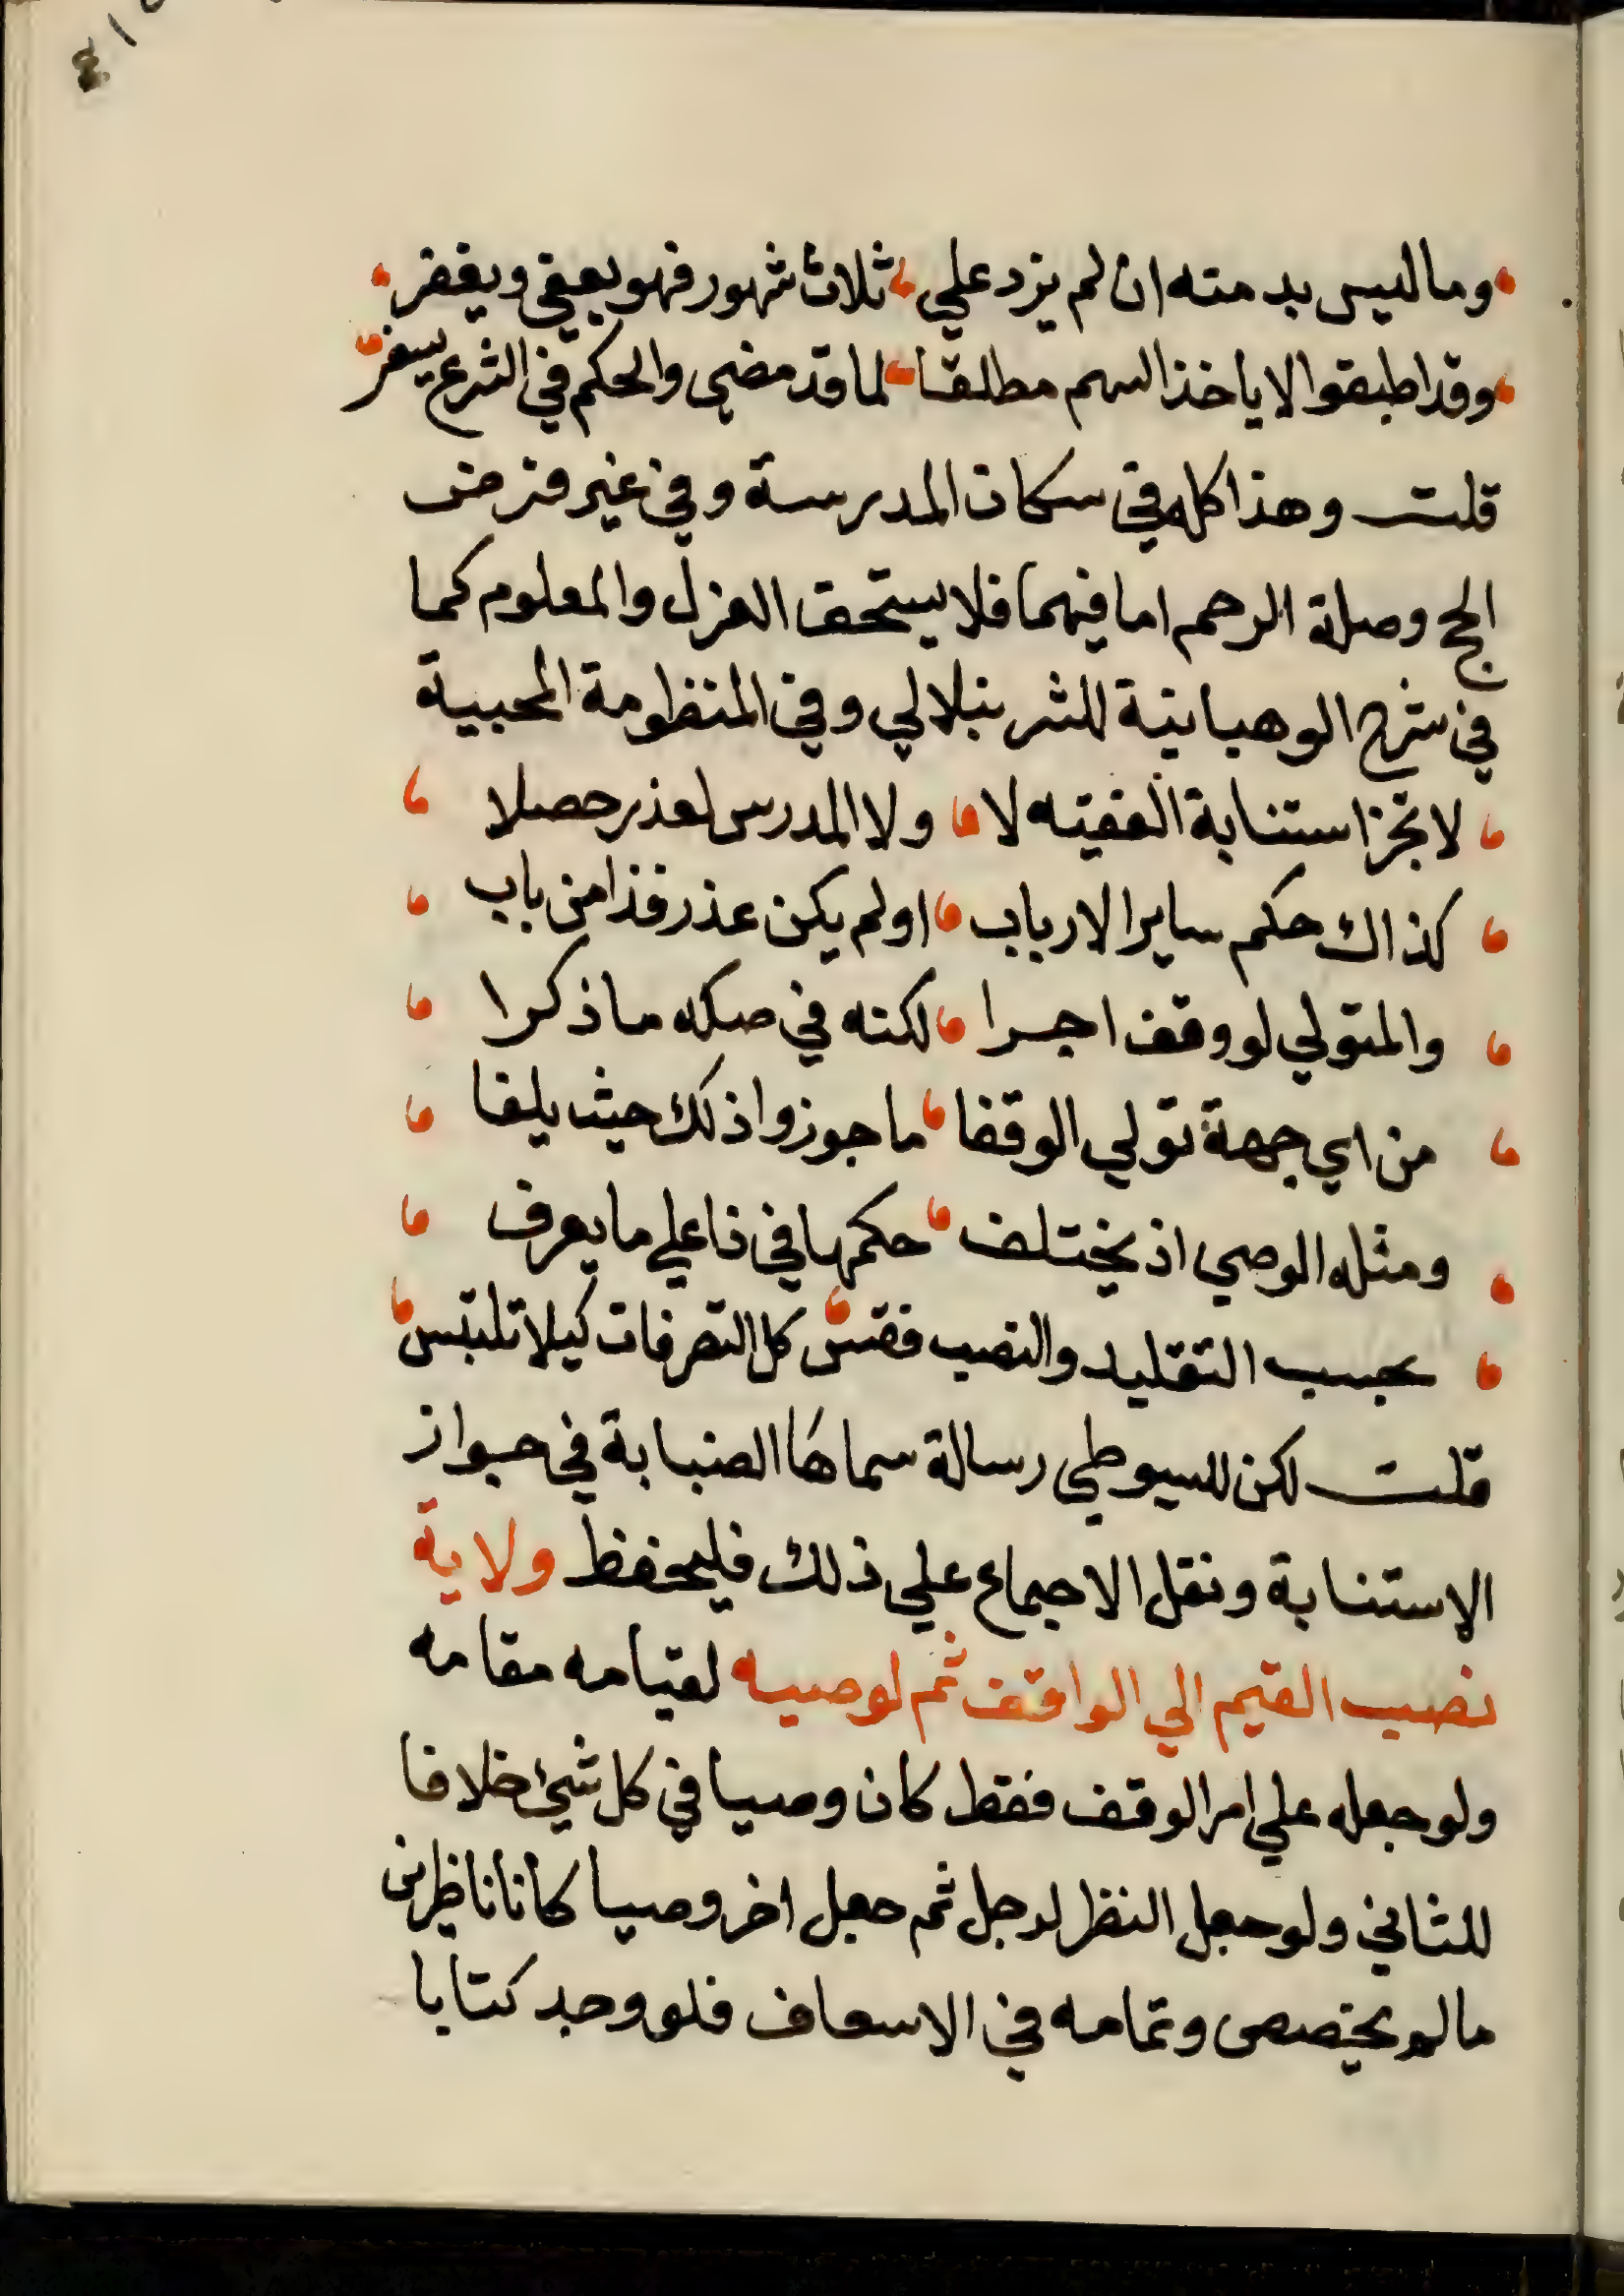 وما ليس بد منه ان لم يزد علي ، ثلاث شهور فهو يعفي ويغفر ،
وقد اطبقوا لا ياخذ السهم مطلقا ، لما قد مضي والحكم في الشرع يسفر ،
قلت وهذا كله في سكان المدرسة وفي غير فرض
الحج وصلة الرحم اما فيهما فلا يستحق العزل والمعلوم كما
في شرح الوهبانية للشرنبلالي وفي المنظومة المحبية
، لا تجز استنابة الفقيه لا ، ولا المدرس لعذر حصلا ،
، كذاك حكم ساير الارباب ، او لم يكن عذر فذا من باب ،
، والمتولي لو وقف اجرا ، لكنه في صكه ما ذكرا ،
، من اي جهة تولي الوقفا ، ما جوزوا ذلك حيث يلفا ،
، ومثله الوصي اذ يختلف ، حكمها في ذا علي ما يعرف ،
، بحسب التقليد والنصب فقس ، كل التصرفات كيلا تلتبس ،
قلت لكن للسيوطي رسالة سماها الضبابة في جواز
الاستنابة ونقل الاجماع علي ذلك فليحفظ ولاية
نصب القيم الي الواقف ثم لوصيه لقيامه مقامه
ولو جعله علي امر الوقف فقط كان وصيا في كل شيئ خلافا
للثاني ولو جعل النظر لرجل ثم جعل اخر وصيا كانا ناظرين
ما لم يخصص وتمامه في الاسعاف فلو وجد كتابا